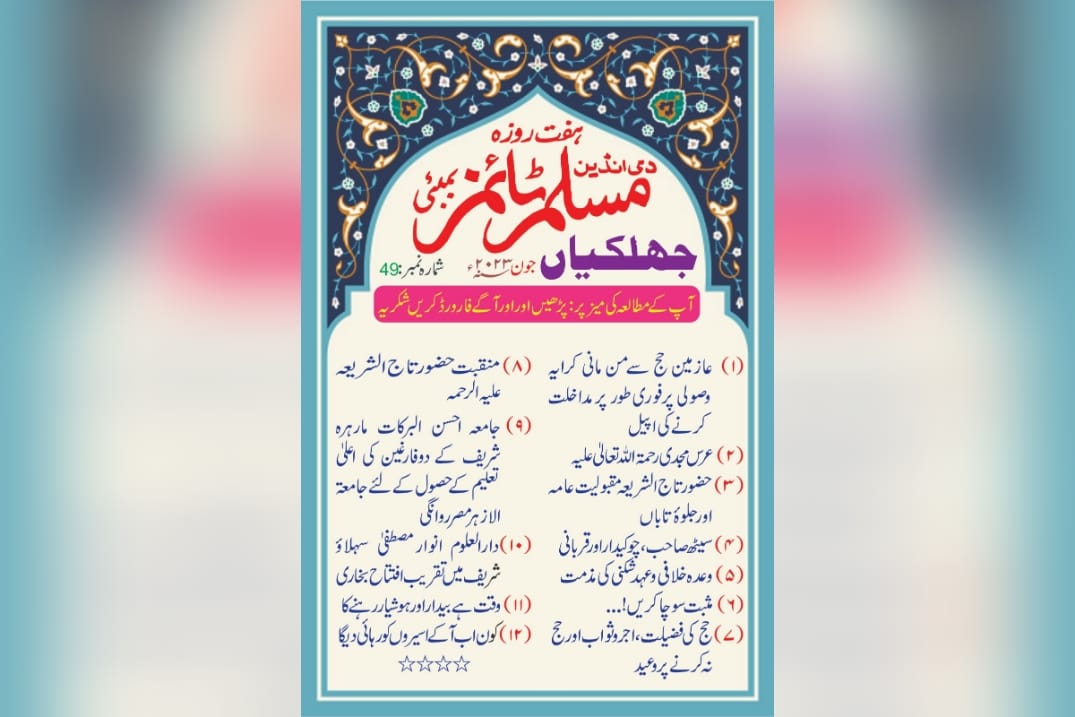 ہفت روزہ
دی انڈین
مسلم ٹائمز بمبئی
جھلکیاں جون ۲۰۲۳ء شمارہ نمبر: 49
آپ کے مطالعہ کی میز پر: پڑھیں اور اور آگے فارورڈ کریں شکریہ
(۱) عازمین حج سے من مانی کرایہ
وصولی پر فوری طور پر مداخلت
کرنے کی اپیل
(۲) عرس مجدی رحمۃ اللہ تعالیٰ علیہ
(۳) حضور تاج الشریعہ مقبولیت عامہ
اور جلوۂ تاباں
(۴) سیٹھ صاحب، چوکیدار اور قربانی
(۵) وعدہ خلافی و عہد شکنی کی مذمت
(۶) مثبت سوچا کریں!...
(۷) حج کی فضیلت، اجر و ثواب اور حج
نہ کرنے پر وعید
(۸) منقبت حضور تاج الشریعہ
علیہ الرحمہ
(۹) جامعہ احسن البرکات مارہرہ
شریف کے دو فارغین کی اعلیٰ
تعلیم کے حصول کے لئے جامعۃ
الازہر مصر روانگی
(۱۰) دارالعلوم انوار مصطفیٰ سہلاؤ
شریف میں تقریب افتتاح بخاری
(۱۱) وقت ہے بیدار اور ہوشیار رہنے کا
(۱۲) کون اب آکے اسیروں کو رہائی دیگا
☆☆☆☆